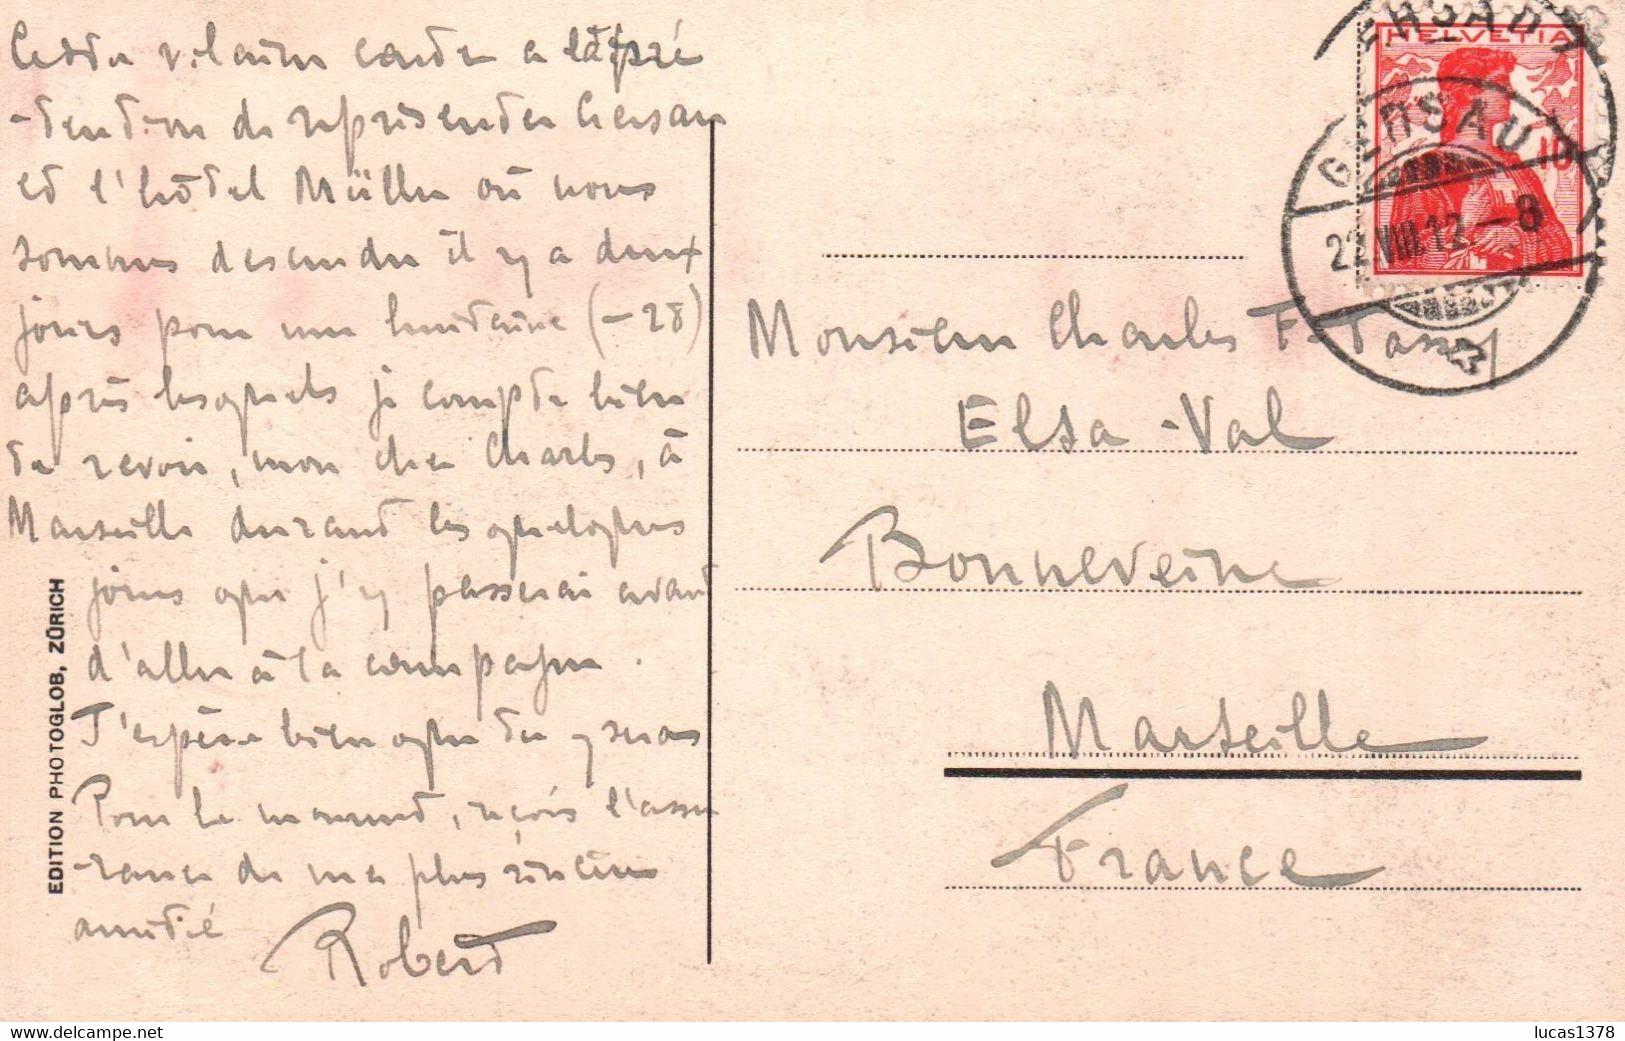 Cette vilaine carte a la pré
-tention de représenter Gersau
et l'hôtel Müller où nous
sommes descendu il y a deux
jours pour une huitaine (-28)
après lesquels je compte bien
te revoir, mon cher Charles, à
Marseille durant les quelques
jours que j'y passerai avant
d'aller à la campagne.
J'espère bien que tu y seras
Pour le moment, reçois l'assu
-rance de ma plus sincère
amitié
Robert
EDITION PHOTOGLOB, ZÜRICH
HELVETIA
10
GERSAU
22.VIII.12.-8
Monsieur Charles F.
Elsa-Val
Bonneveine
Marseille
France
delcampe.net
lucas1378